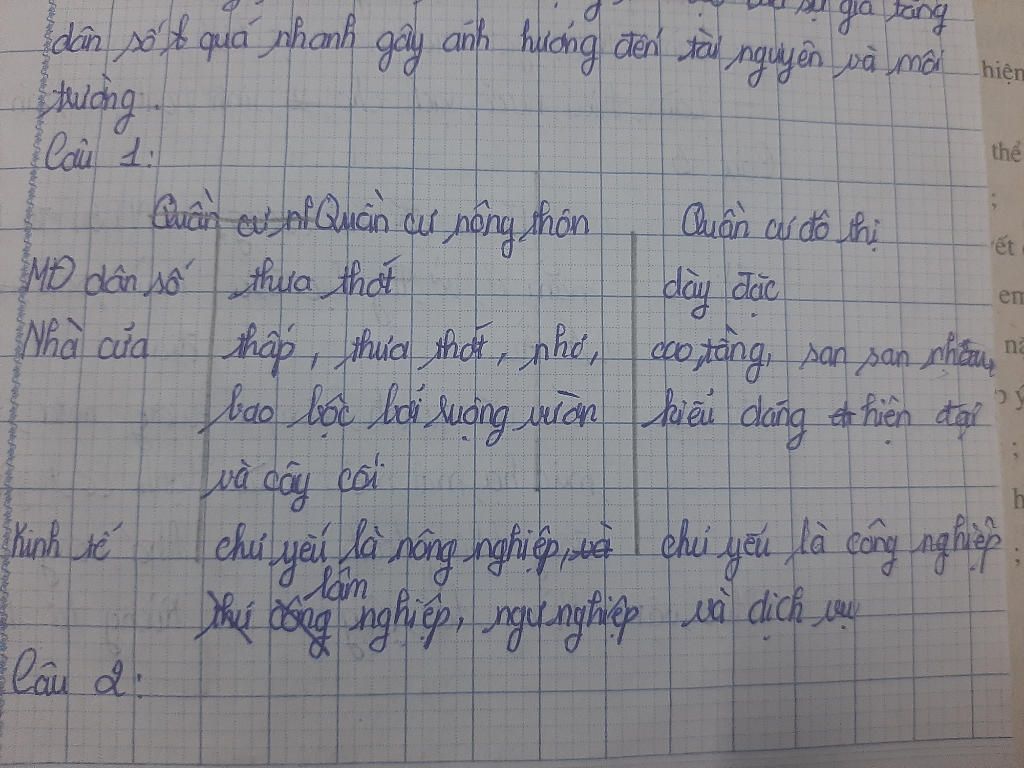 gia tăng
dân số quá nhanh gây ảnh hưởng đến tài nguyên và môi
trường.
hiện
thể
Câu 1:
;
Quần cư n Quần cư nông thôn Quần cư đô thị
MĐ dân số thưa thớt dày đặc
Nhà cửa thấp, thưa thớt, nhỏ, cao tầng, san san nhau,
bao bọc bởi ruộng vườn kiểu dáng hiện đại
và cây cối
Kinh tế chủ yếu là nông nghiệp, và chủ yếu là công nghiệp
lâm
thủ công nghiệp, ngư nghiệp và dịch vụ
Câu 2: